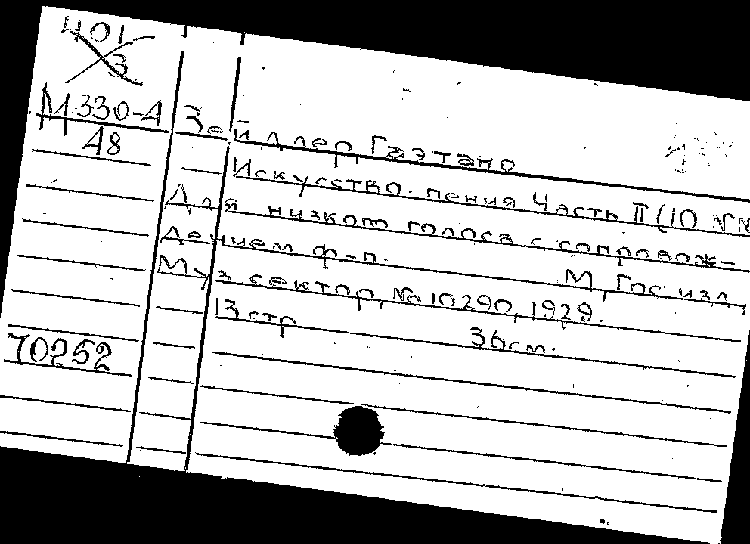 401
3
М330-4
48
Зейдлер, Гаэтано
Искусство пения Часть II (10 №№
Для низкого голоса с сопровож-
дением ф-п. М, Гос изд,
Муз сектор, № 10290, 1929.
13 стр 36 см.
70252